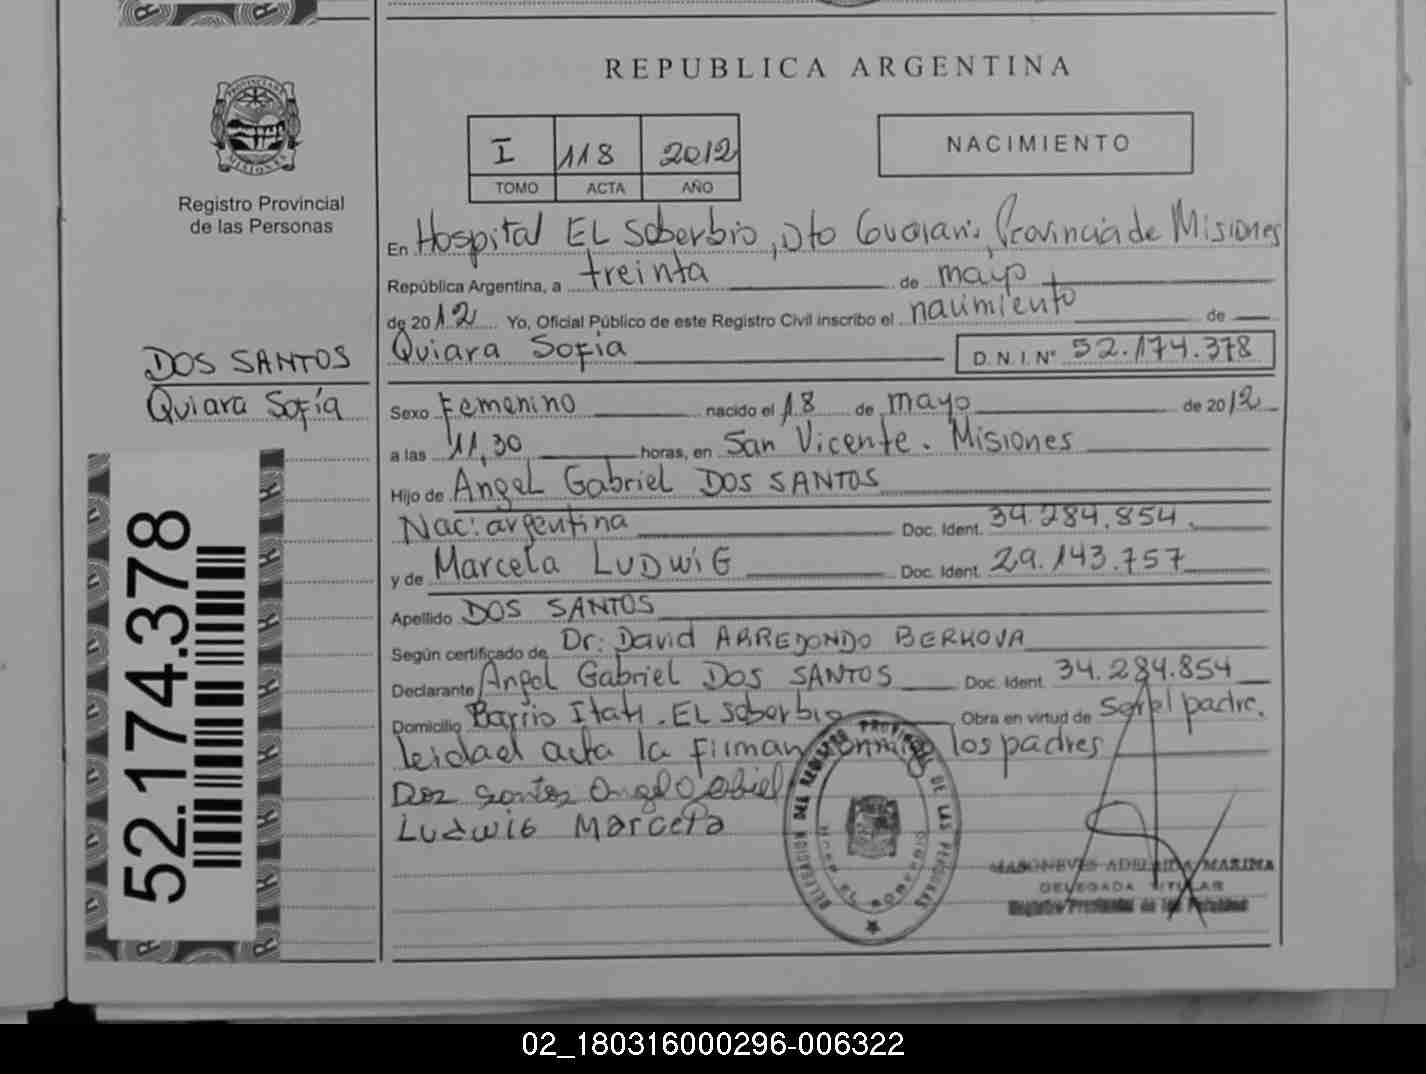 REPUBLICA ARGENTINA
I 118 2012
TOMO ACTA AÑO
NACIMIENTO
Registro Provincial
de las Personas
En Hospital EL Soberbio, Dto Guarani, Provincia de Misiones
República Argentina, a treinta de mayo
de 2012 Yo, Oficial Público de este Registro Civil inscribo el nacimiento de
Quiara Sofia D.N.I. Nº 52.174.378
DOS SANTOS
Quiara Sofía
Sexo Femenino nacido el 18 de mayo de 2012
a las 11,30 horas, en San Vicente. Misiones
Hijo de Angel Gabriel DOS SANTOS
Nac: argentina Doc. Ident. 34.284.854.
y de Marcela LUDWIG Doc. Ident. 29.143.757
Apellido DOS SANTOS
Según certificado de Dr. David ARREDONDO BERKOVA
Declarante Angel Gabriel DOS SANTOS Doc. Ident. 34.284.854
Domicilio Barrio Itati. EL Soberbio Obra en virtud de ser el padre.
leida el acta la firman conmigo los padres
Dos Santos Angel Gabriel
LUDWIG Marcela
52.174.378
DELEGACION DEL REGISTRO PROVINCIAL DE LAS PERSONAS
EL SOBERBIO
ADELAIDA MARINA
DELEGADA TITULAR
Registro Provincial de las Personas
02_180316000296-006322